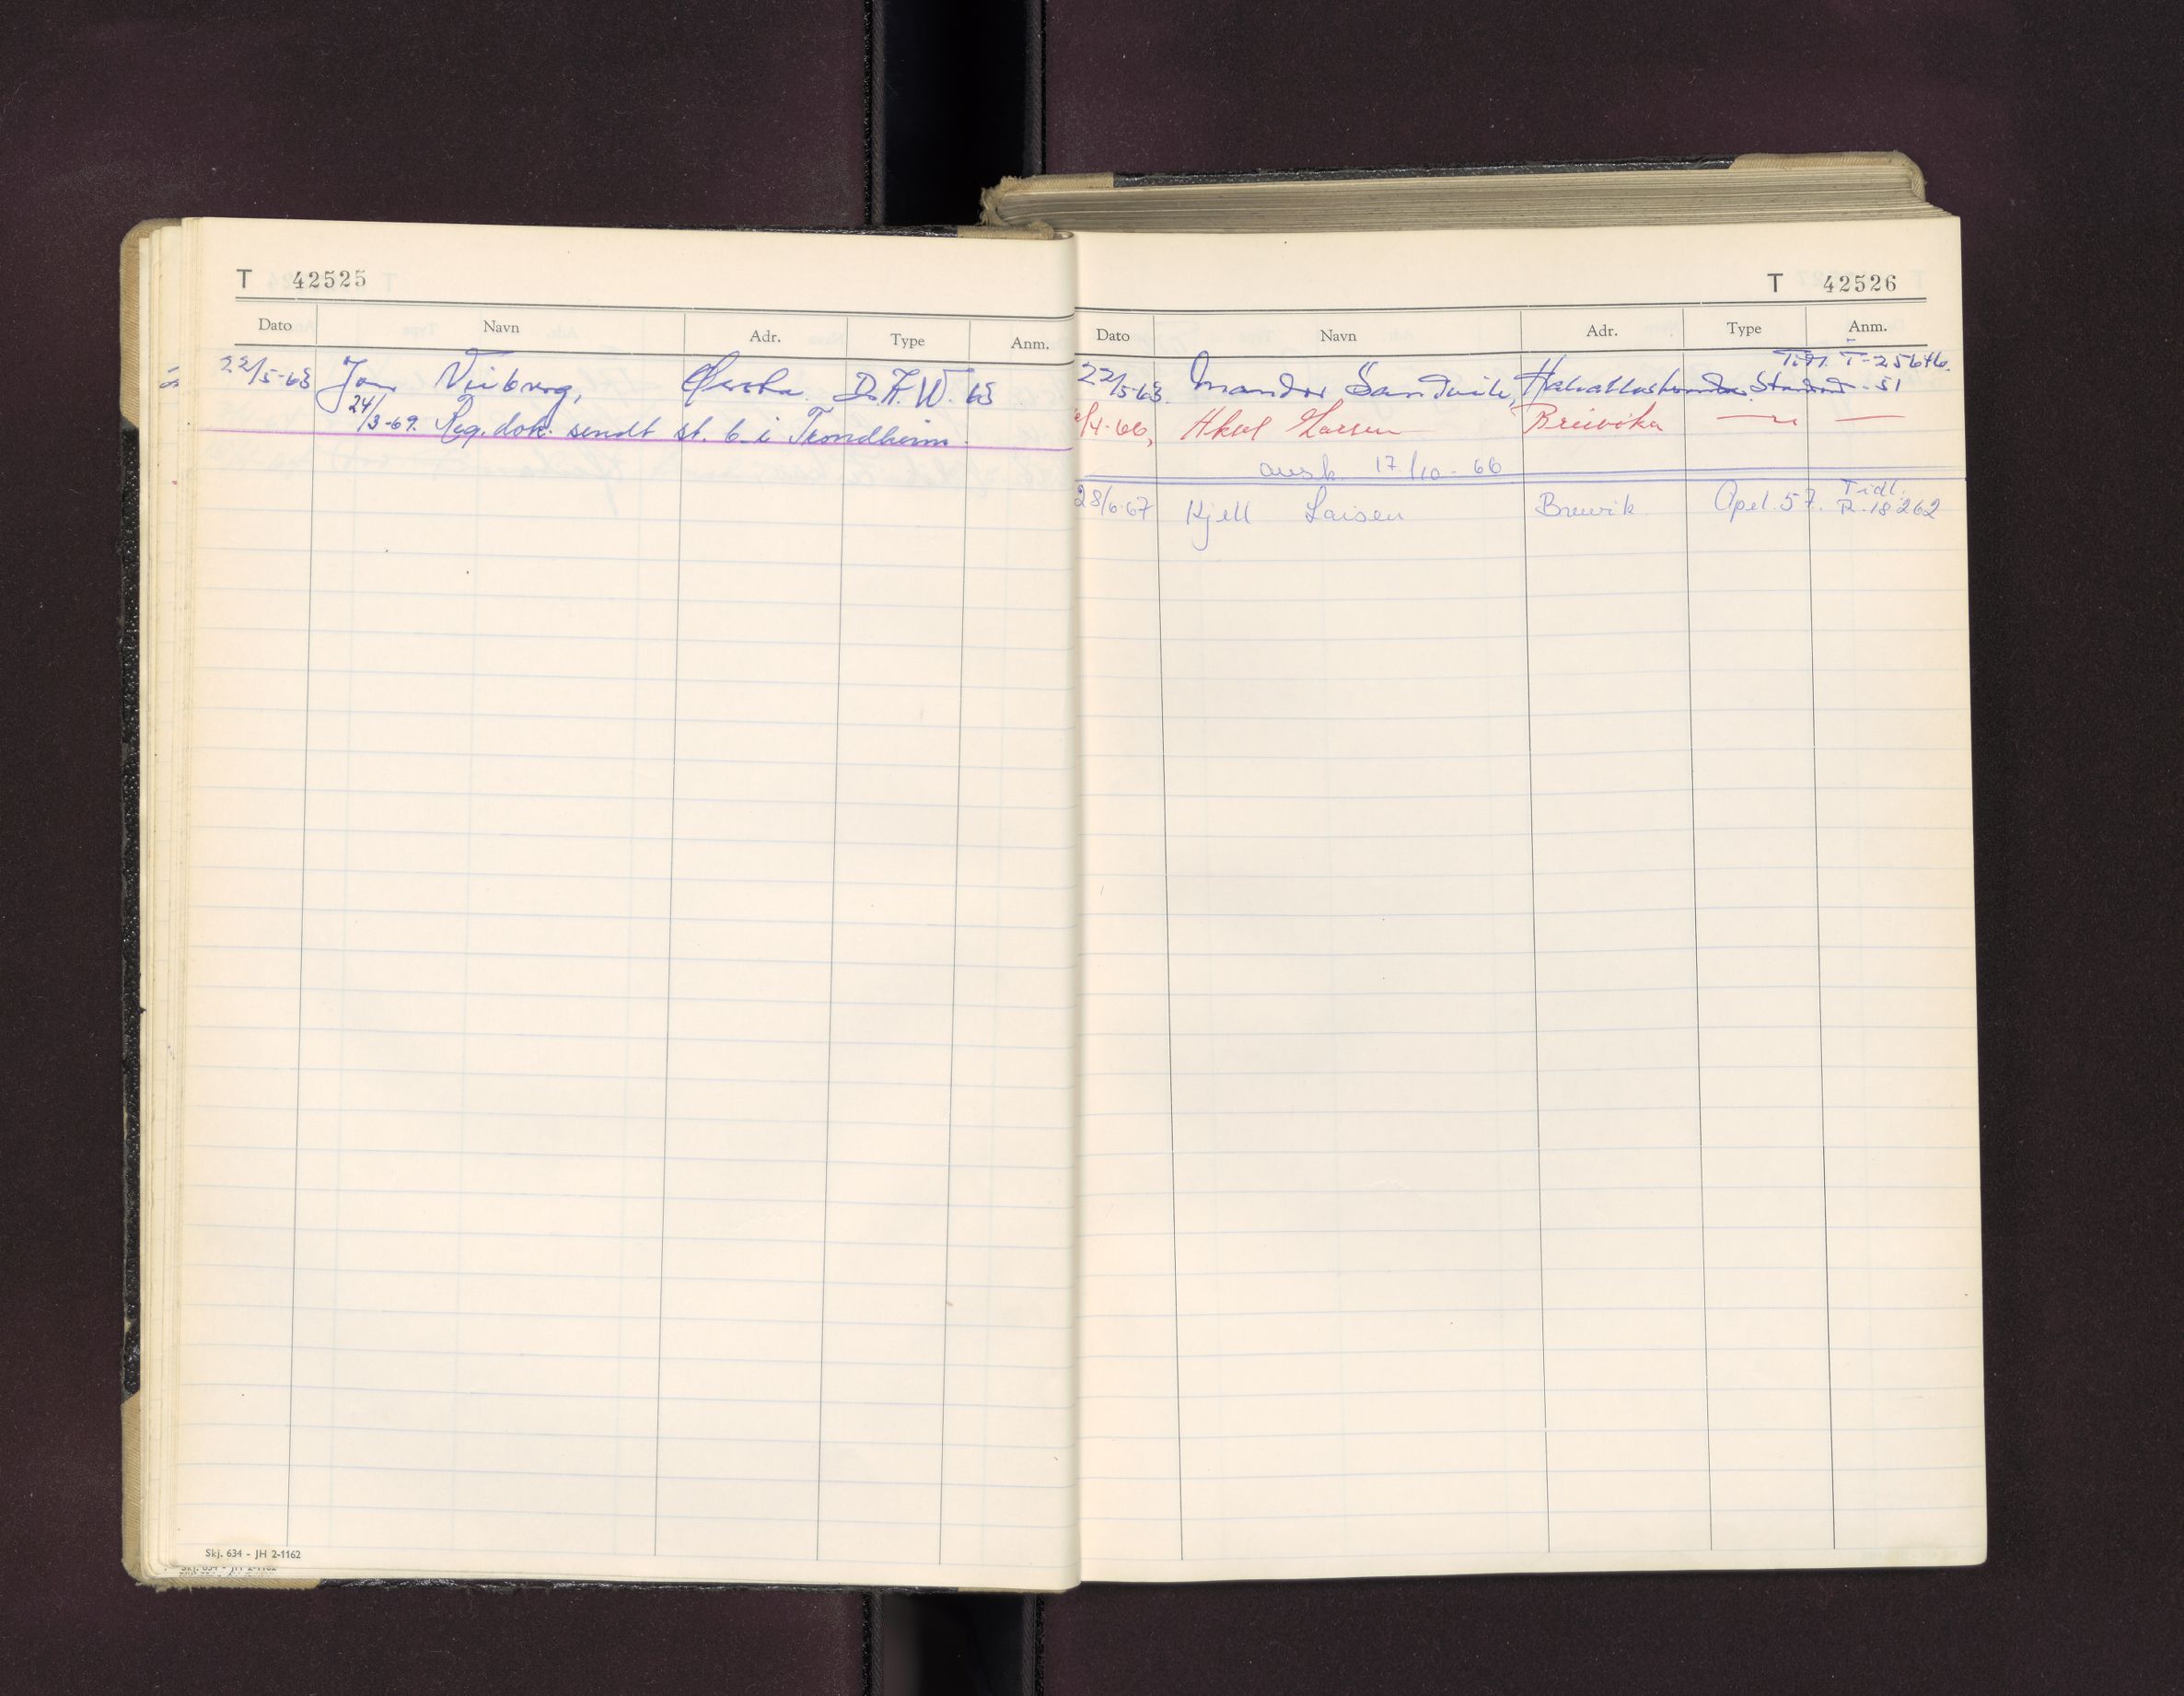 T 42525
Dato Navn Adr. Type Anm.
22/5-63 Jon Viiberg, Ørsta D.K.W. 63
24/3-69. Reg. dok. sendt st. b. i Trondheim.
Skj. 634 - JH 2-1162
T 42526
Dato Navn Adr. Type Anm.
Tidl. T-25646.
22/5-63. Sandvik, Standard -51
/4-66, Larsen Breivika — " —
avsk. 17/10-66
28/6-67 Kjell Larsen Breivik Opel 57. Tidl. R-18262